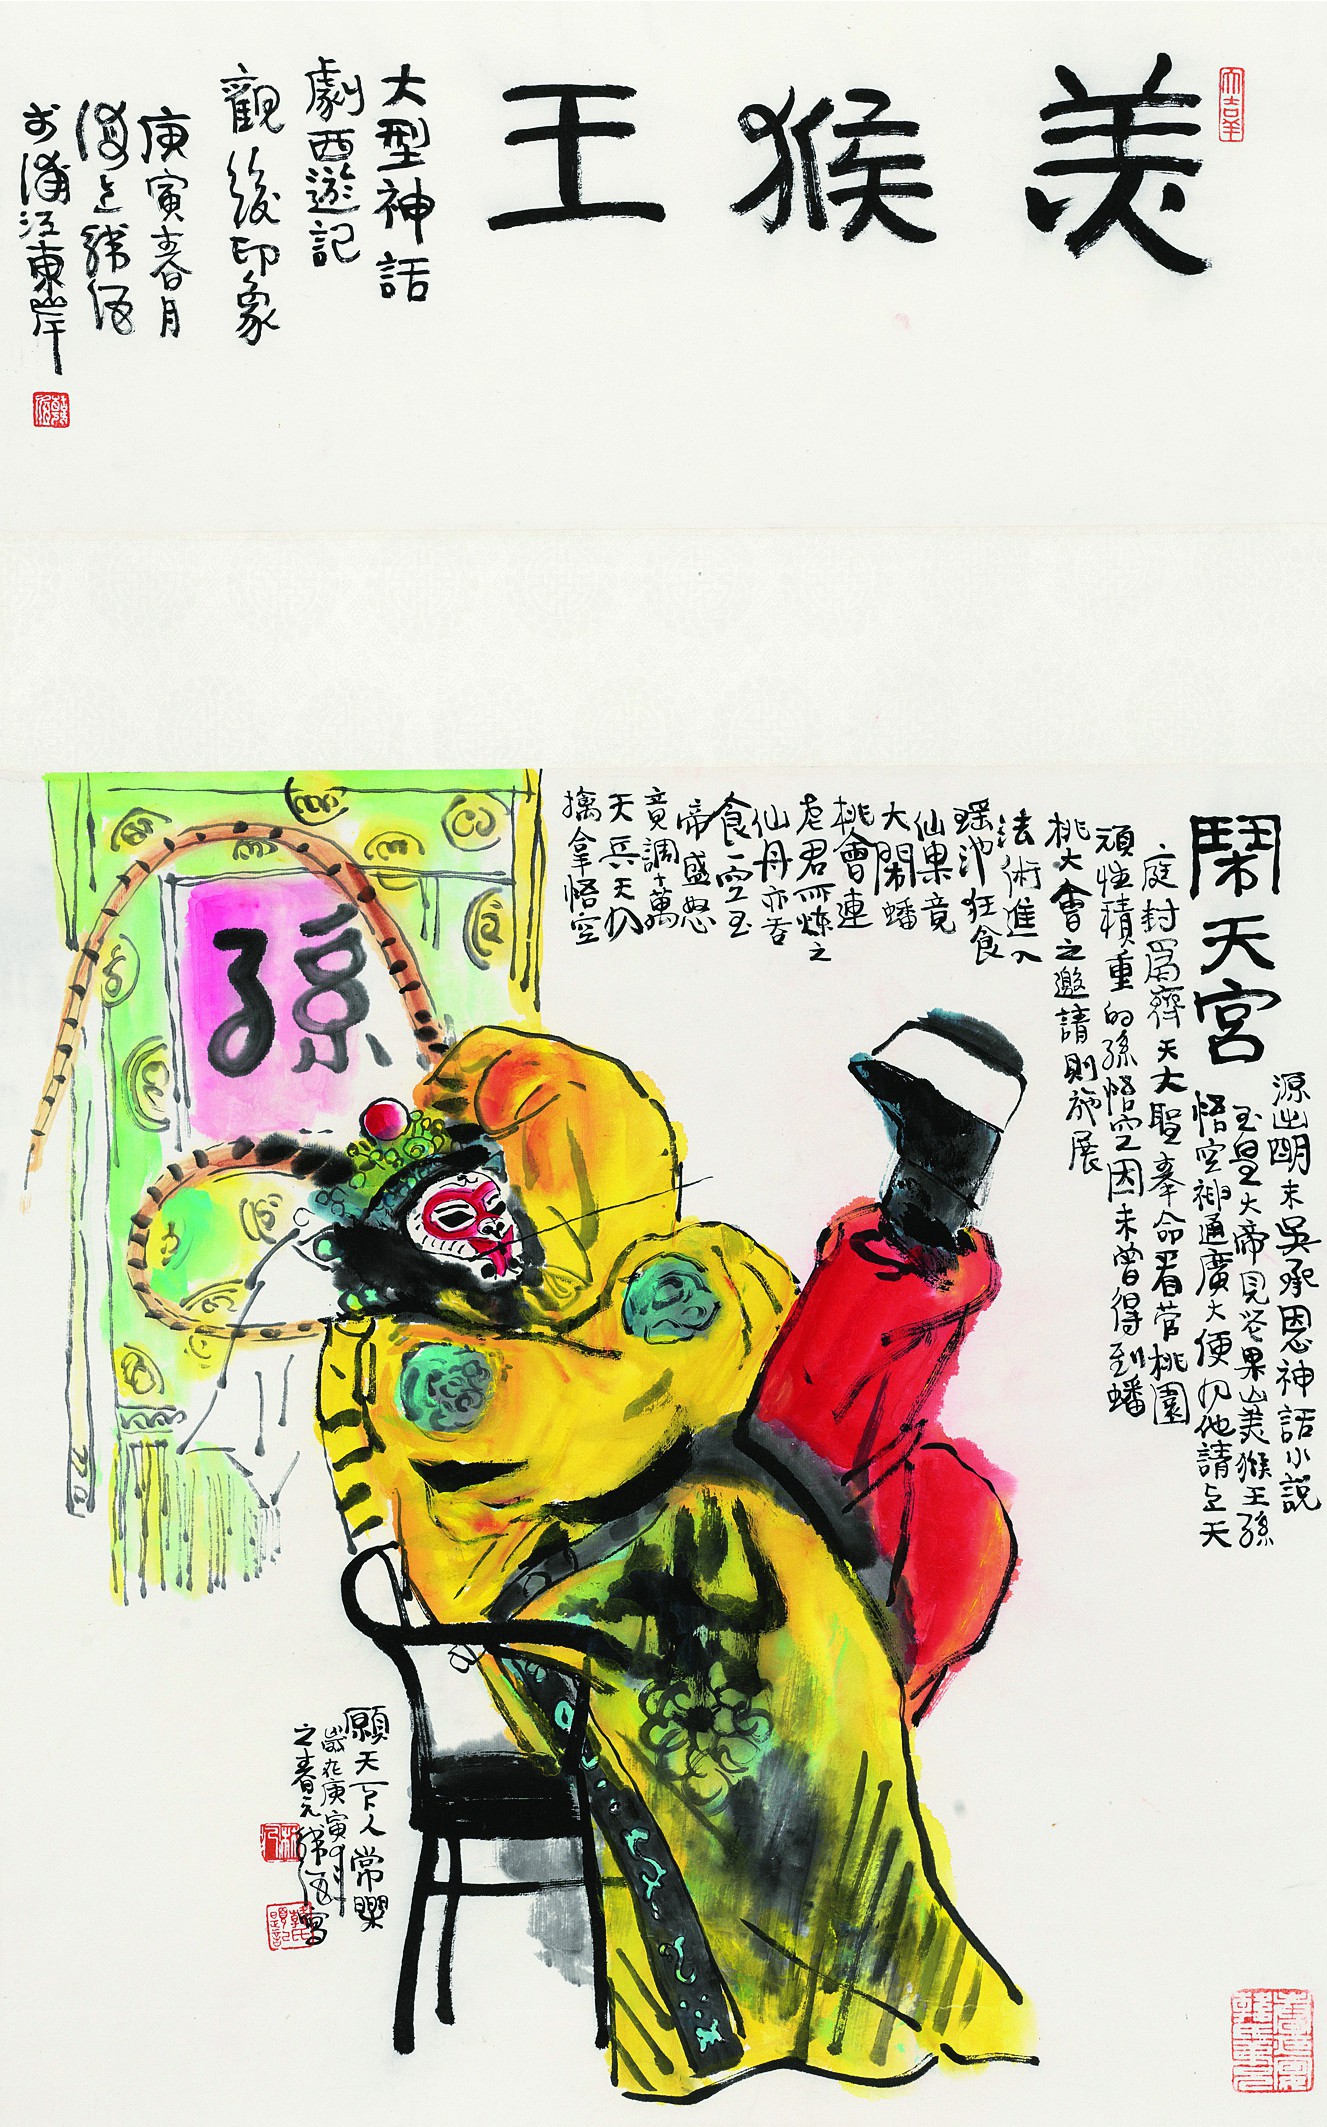 美猴王
大吉羊
大型神話
劇西遊記
觀後印象
庚寅春月
海上韓伍
於浦江東岸
鬧天宮
源出明末吳承恩神話小說
玉皇大帝見花果山美猴王孫
悟空神通廣大便把他請上天
庭封爲齊天大聖奉命看管桃園
頑性積重的孫悟空因未曾得到蟠
桃大會之邀請則施展
法術進入
瑶池狂食
仙果竟
大鬧蟠
桃會連
老君所煉之
仙丹亦吞
食一空玉
帝盛怒
竟調十萬
天兵天將
擒拿悟空
孫
願天下人常樂
歲在庚寅
之春元韓伍寫